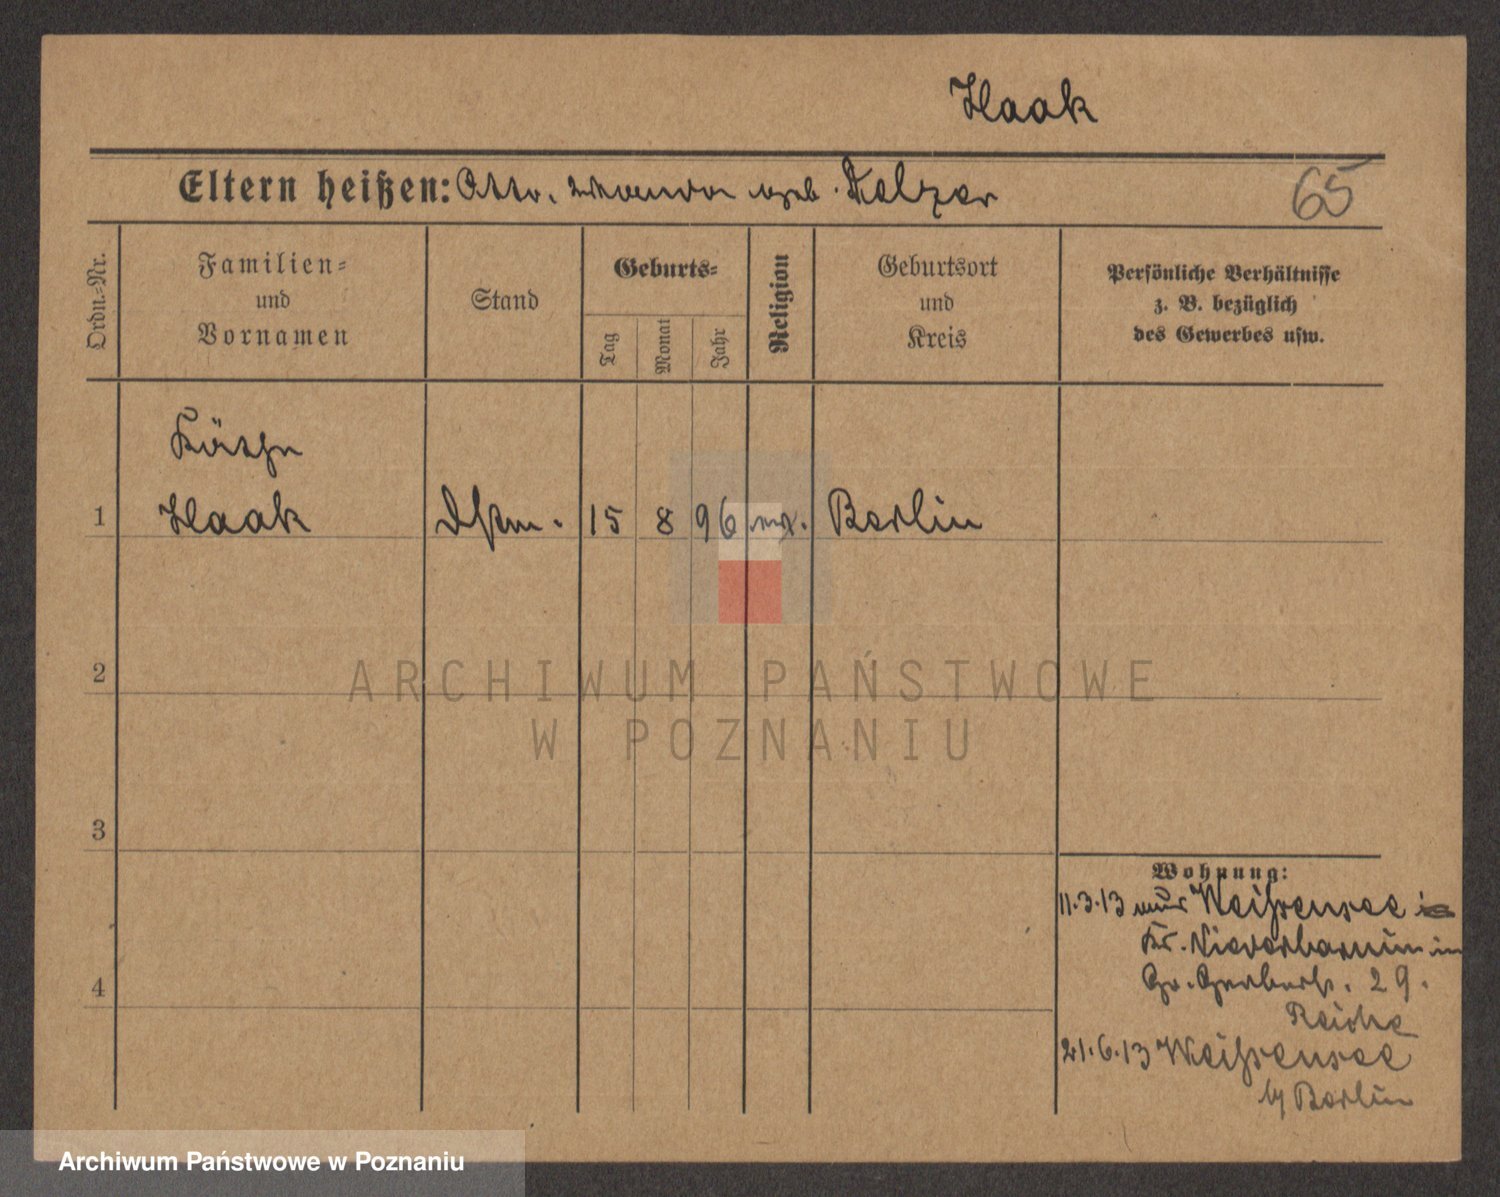 Haak
Eltern heißen: Otto, geb. Kelzer
65
Ordn.-Nr.
Familien-
und
Vornamen
Stand
Geburts-
Tag
Monat
Jahr
Religion
Geburtsort
und
Kreis
Persönliche Verhältnisse
z. B. bezüglich
des Gewerbes usw.
Käthe
1 Haak Dstm. 15 8 96 Berlin
2
ARCHIWUM PAŃSTWOWE
W POZNANIU
3
Wohnung:
11.3.13 aus Weißensee
Kr. Niederbarnim in
Gr. Gerberstr. 29.
4
Reiche
21.6.13 Weißensee
b/ Berlin
Archiwum Państwowe w Poznaniu